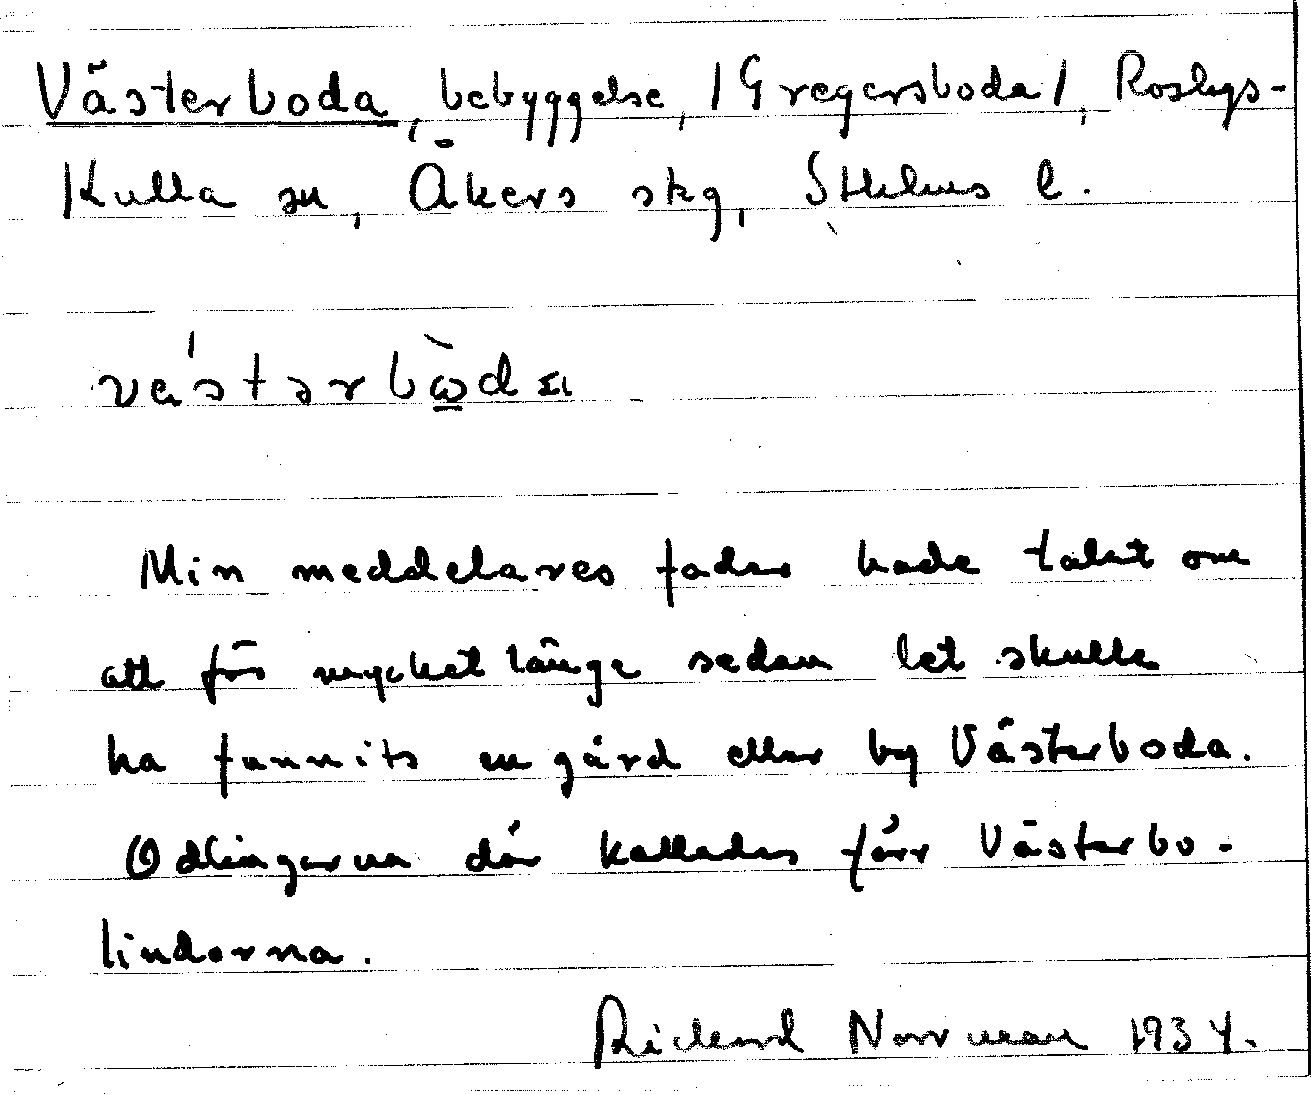 Västerboda, bebyggelse, /Gregersboda/, Roslags-
Kulla sn, Åkers skg, Sthlms l.
Min meddelares fader hade talat om
att för mycket länge sedan det skulle
ha funnits en gård eller by Västerboda.
Odlingarna där kallades förr Västerbo-
lindorna.
Rickard Norrman 1934.